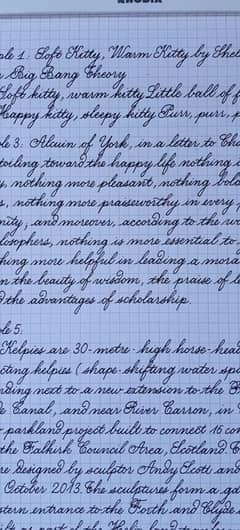 RHODIA
ple 1. Soft Kitty, Warm Kitty by Shel
Big Bang Theory
Soft kitty, warm kitty Little ball of f
Happy kitty, sleepy kitty Purr, purr, p
le 3. Alcuin of York, in a letter to Cha
toiling toward the happy life nothing i
y, nothing more pleasant, nothing bold
s, nothing more praiseworthy in every
nity, and moreover, according to the
losophers, nothing is more essential to
hing more helpful in leading a mora
n the beauty of wisdom, the praise of le
d the advantages of scholarship.
le 5.
Kelpies are 30-metre-high horse-head
cting kelpies (shape-shifting water sp
nding next to a new extension to the F
e Canal, and near River Carron, in
parkland project built to connect 16 com
the Falkirk Council Area, Scotland. T
re designed by sculptor Andy Scott and
October 2013. The sculptures form a ga
stern entrance to the Forth and Clyde